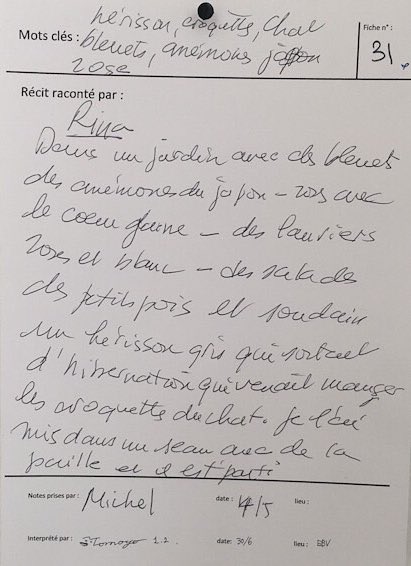 hérisson, croquette, chat
Mots clés : bleuets, anémones japon
rose
Fiche n° :
31
Récit raconté par :
Rina
Dans un jardin avec des bleuets
des anémones du japon - roses avec
le coeur jaune - des lauriers
roses et blanc - des salades
des petits pois et soudain
un hérisson gris qui sortait
d'hibernation qui venait manger
les croquette du chat. je l'ai
mis dans un seau avec de la
paille et il est parti
Notes prises par : Michel date : 14/5 lieu :
Interprété par : 1.2. date: 30/6 lieu : EBV